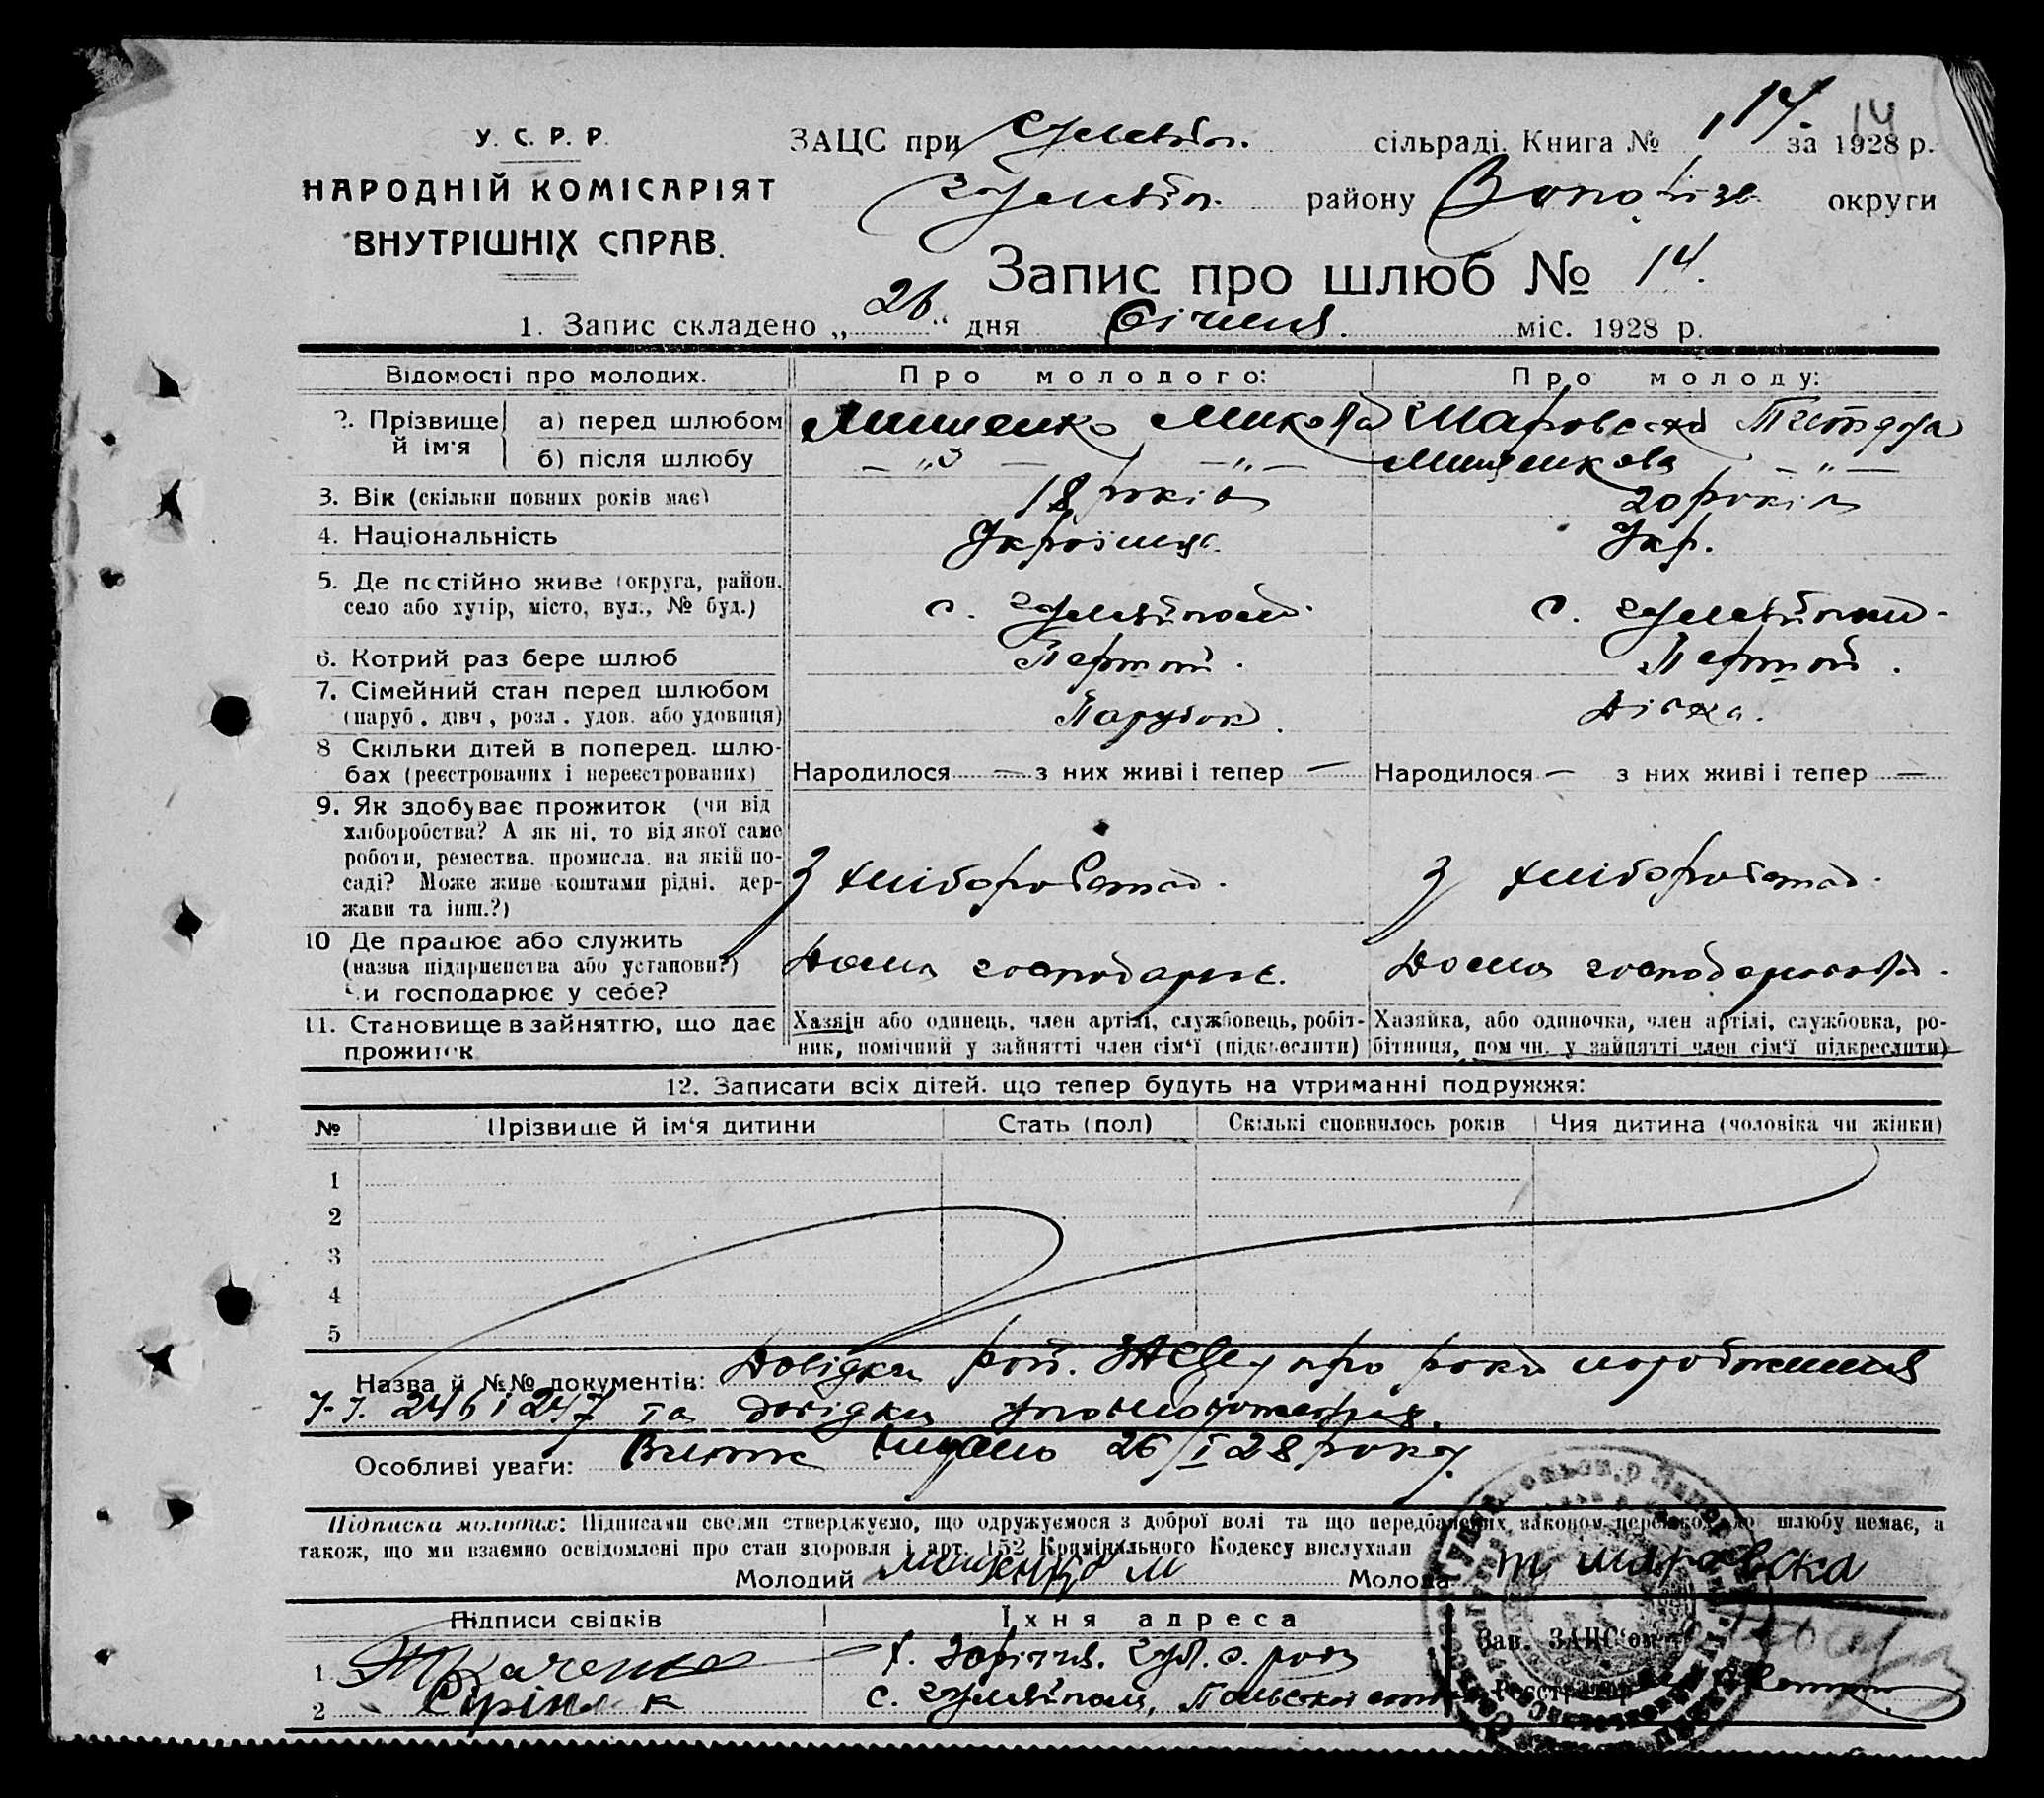 У. С. Р. Р.
НАРОДНІЙ КОМІСАРІЯТ
ВНУТРІШНІХ СПРАВ.
ЗАЦС при Гуляйпіл. сільраді. Книга № 14. 14 за 1928 р.
Гуляйпіл. району Запорізь округи
Запис про шлюб № 14.
1. Запис складено „ 26 “ дня Січння. міс. 1928 р.
Відомості про молодих. Про молодого: Про молоду:
2. Прізвище й ім'я а) перед шлюбом Мищенко Микола Шаровська
б) після шлюбу — „ — — „ — Мищенкова — „ —
3. Вік (скільки повних років має) 18 років 20 років
4. Національність Українец. Укр.
5. Де постійно живе (округа, район,
село або хутір, місто, вул., № буд.) с. Гуляйполі. с. Гуляйполі.
6. Котрий раз бере шлюб Перший. Перший.
7. Сімейний стан перед шлюбом
(паруб., дівч., розл., удов. або удовиця) Парубок. Дівка.
8 Скільки дітей в поперед. шлю-
бах (реєстрованих і нереєстрованих) Народилося — з них живі і тепер — Народилося — з них живі і тепер —
9. Як здобуває прожиток (чи від
хліборобства? А як ні, то від якої саме
роботи, ремества, промисла, на якій по-
саді? Може живе коштами рідні, дер-
жави та інш.?) З хліборобства. З хліборобства.
10 Де працює або служить
(назва підприємства або установи?)
Чи господарює у себе? Дома господарює. Дома
11. Становище в зайняттю, що дає
прожиток
Хазяїн або одинець, член артілі, службовець, робіт-
ник, помічний у зайнятті член сім'ї (підкреслити)
Хазяйка, або одиночка, член артілі, службовка, ро-
бітниця, помічн. у зайнятті член сім'ї підкреслити)
12. Записати всіх дітей, що тепер будуть на утриманні подружжя:
№ Прізвище й ім'я дитини Стать (пол) Скількі сповнилось років Чия дитина (чоловіка чи жінки)
1
2
3
4
5
Назва й №№ документів: Довідки рай. ЗАЦСу про роки народження
246 і 247 та довідки
Особливі уваги: 26/I 28 року.
Підписка молодих: Підписами своїми стверджуємо, що одружуємося з доброї волі та що передбачених законом перешкод до шлюбу немає, а
також, що ми взаємно освідомлені про стан здоровля і арт. 152 Кримінального Кодексу вислухали
Молодий Мищенко М Молода Т Шаровска
Підписи свідків Їхня адреса Зав. ЗАЦС'ом
1. Ткаченко
2 с. Гуляйполі, Реєстратор